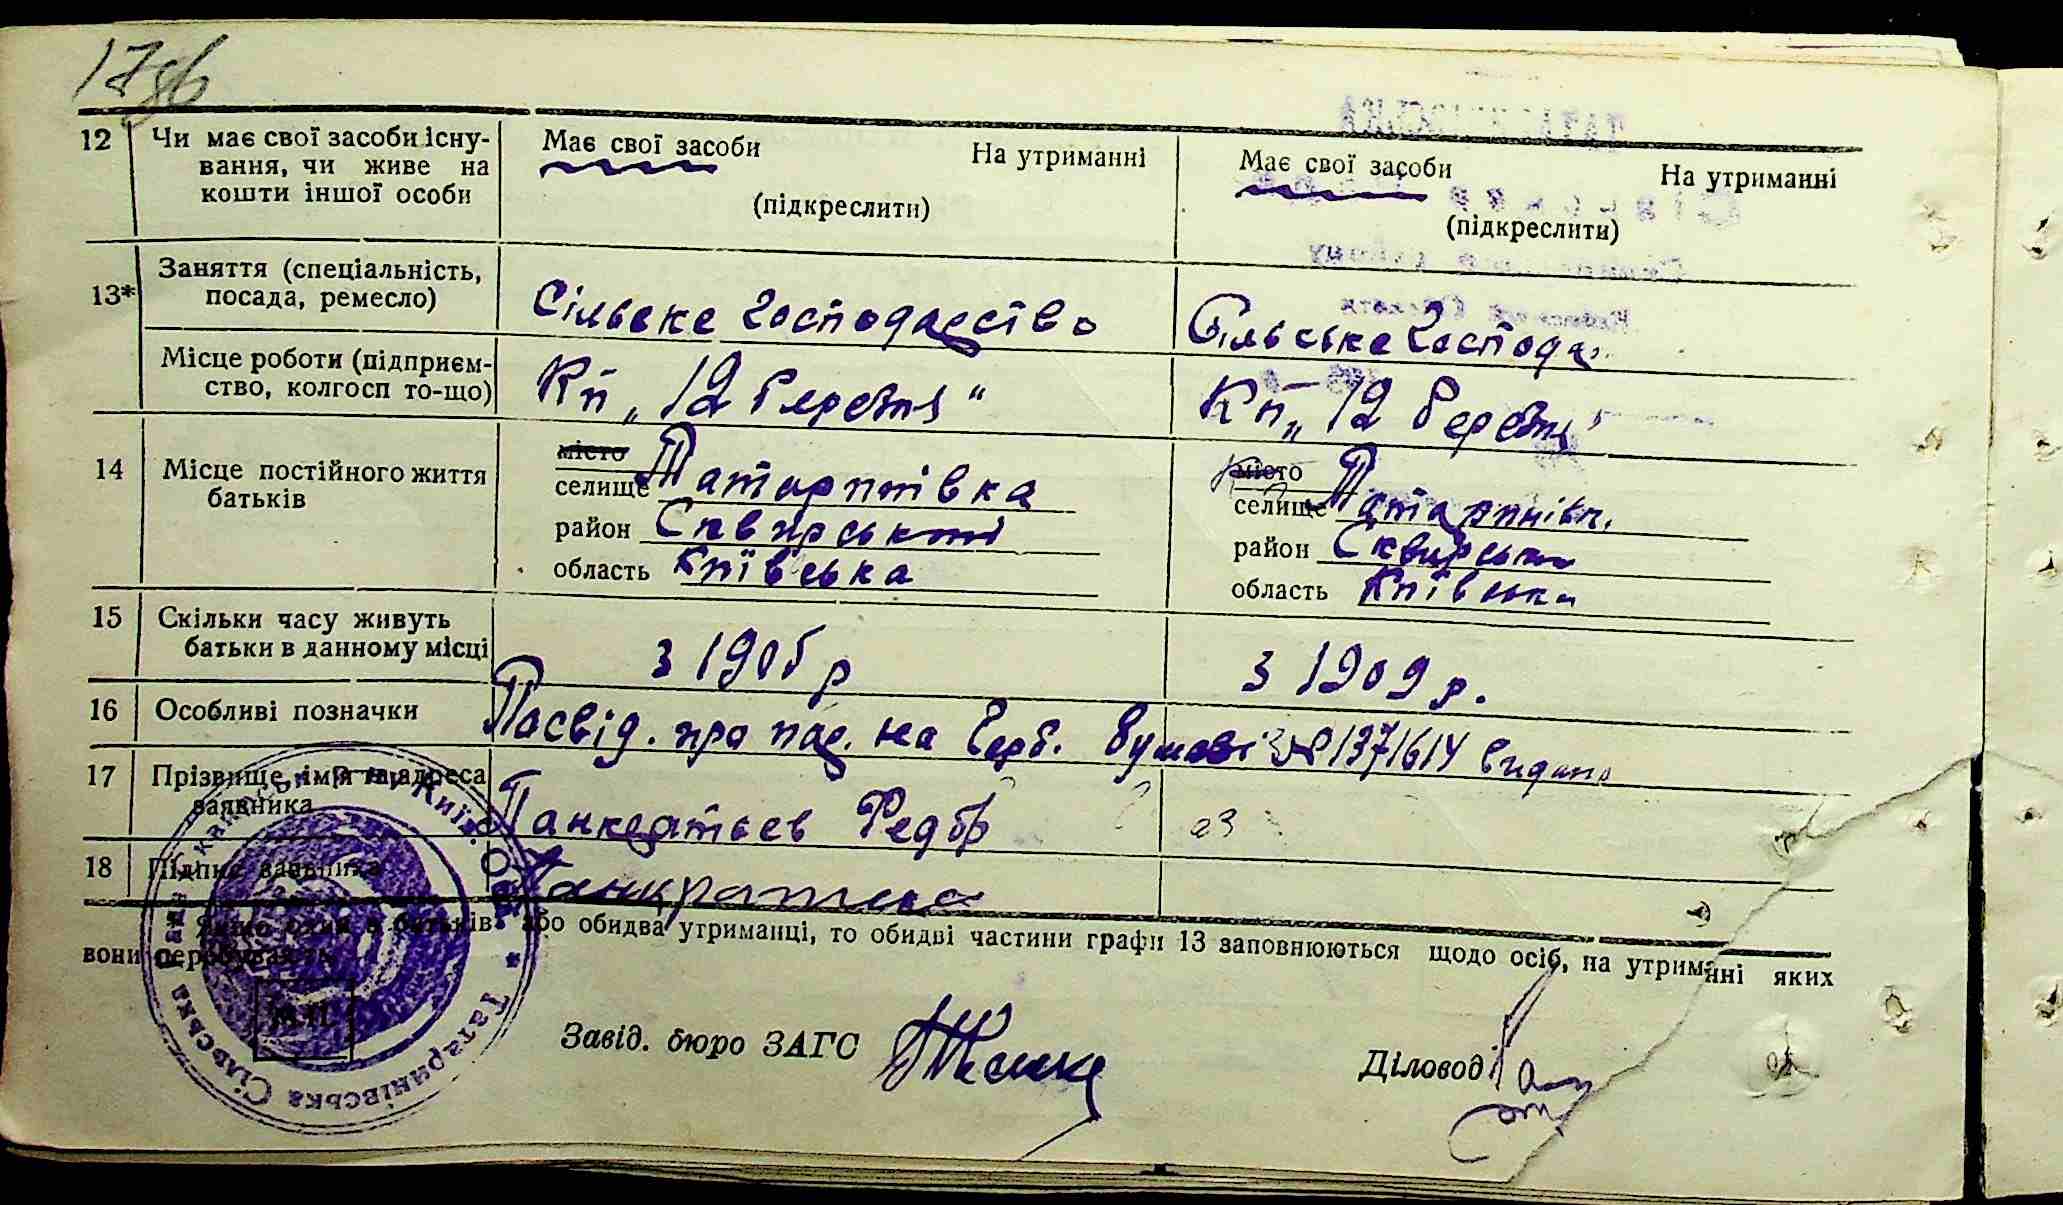 1786
12 Чи має свої засоби існу- Має свої засоби На утриманні Має свої засоби На утриманні
вання, чи живе на
кошти іншої особи (підкреслити) (підкреслити)
13* Заняття (спеціальність, посада, ремесло) Сільске Господарство Сільське Господа
Місце роботи (підприєм- Кп „12 Березня“ Кп „12 Березня
ство, колгосп то-що)
14 Місце постійного життя місто місто
батьків селище Татаринівка селище Татаринівк.
район Сквирський район Сквирськи
область Київська область Київська
15 Скільки часу живуть з 1905 р з 1909 р.
батьки в данному місці
16 Особливі позначки Посвід. про на № 1371614 видано
17 Прізвище, імя та адреса Панкратьєв Федор
заявника
18 Підпис заявника Панкратьев
Якщо один з батьків або обидва утриманці, то обидві частини графи 13 заповнюються щодо осіб, на утриманні яких
вони перебувають
М.П.
Завід. бюро ЗАГС Діловод
Татаринівська Сільська